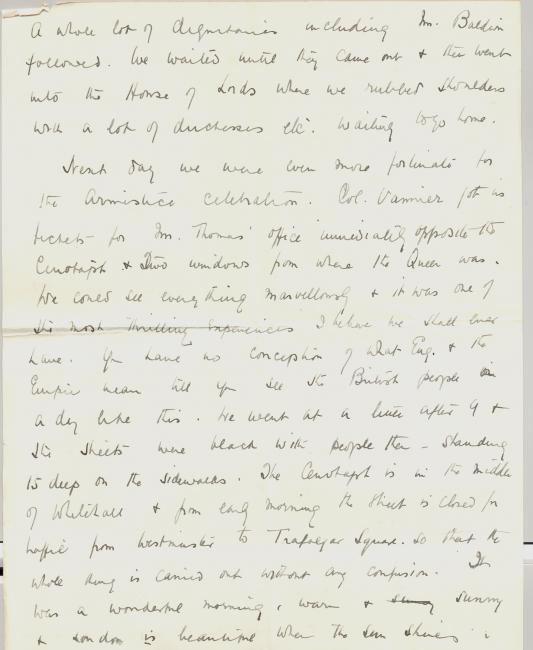 A whole lot of dignitaries including Mr. Baldwin
followed. We waited until they came out & then went
into the House of Lords where we rubbed shoulders
with a lot of duchesses etc. waiting to go home.
Next day we were even more fortunate for
the Armistice celebration. Col. Vannier got us
tickets for Mr. Thomas' office immediately opposite the
Cenotaph & two windows from where the Queen was.
We could see everything marvellously & it was one of
the most thrilling experiences I believe we shall ever
have. You have no conception of what Eng. & the
Empire mean till you see the British people on
a day like this. We went at a little after 9 &
the streets were black with people then - standing
15 deep on the sidewalks. The Cenotaph is in the middle
of Whitehall & from early morning the street is closed for
traffic from Westminster to Trafalgar Square. So that the
whole thing is carried out without any confusion. It
was a wonderful morning, warm & sunny
& London is beautiful when the sun shines